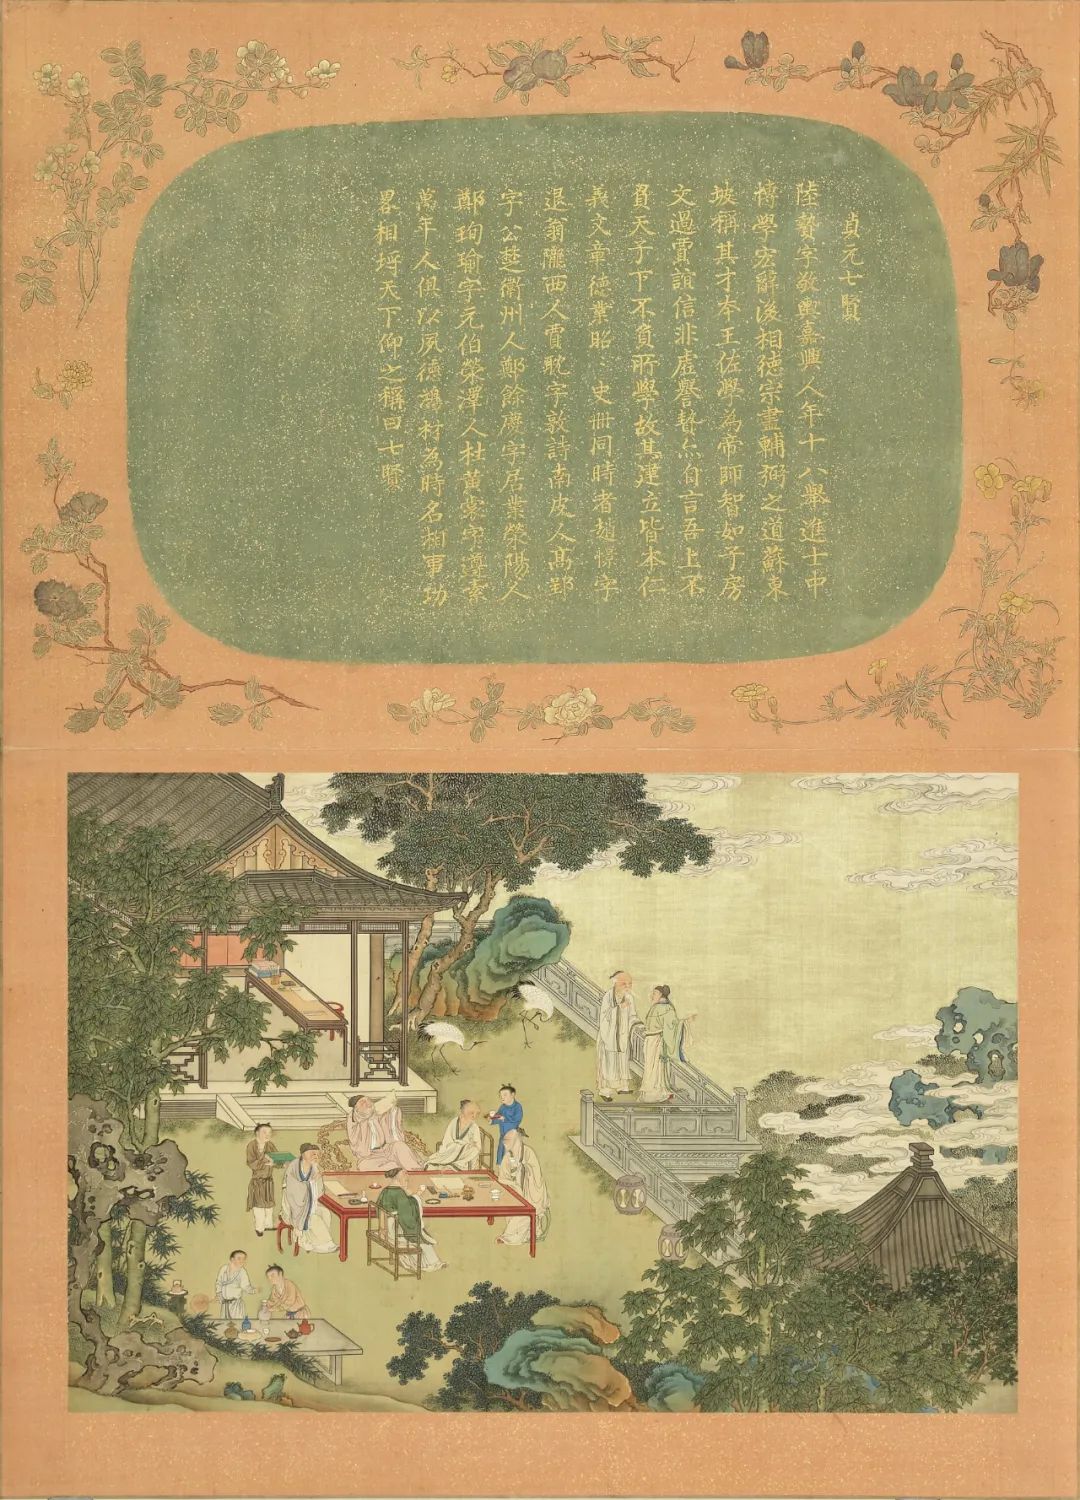 貞元七賢
陸贄字敬輿嘉興人年十八舉進士中
博學宏辭後相德宗盡輔弼之道蘇東
坡稱其才本王佐學為帝師智如子房
文過賈誼信非虛譽贄亦自言吾上不
負天子下不負所學故其建立皆本仁
義文章德業昭〻史冊同時者趙憬字
退翁隴西人賈耽字敦詩南皮人高郢
字公楚衢州人鄭餘慶字居業滎陽人
鄭珣瑜字元伯滎澤人杜黃裳字遵素
萬年人俱以夙德鴻材為時名相事功
畧相埒天下仰之稱曰七賢